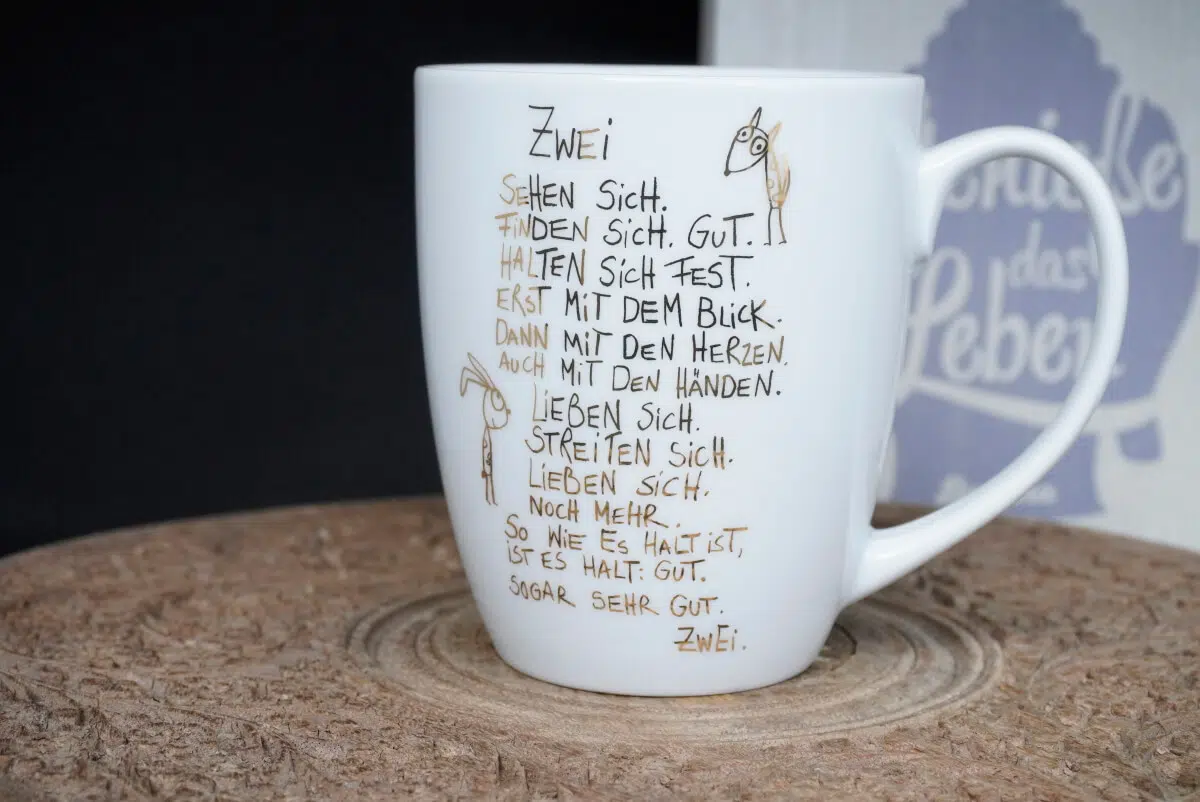 Zwei
SEHEN SiCH.
FiNDEN SiCH. GUT.
HALTEN SiCH FEST.
ERST MiT DEM BLiCK.
DANN MiT DEN HERZEN.
AUCH MiT DEN HÄNDEN.
LiEBEN SiCH.
STREiTEN SiCH.
LiEBEN SiCH.
NOCH MEHR.
SO WiE ES HALT iST,
iST ES HALT: GUT.
SOGAR SEHR GUT.
ZWEi.
das
Leben